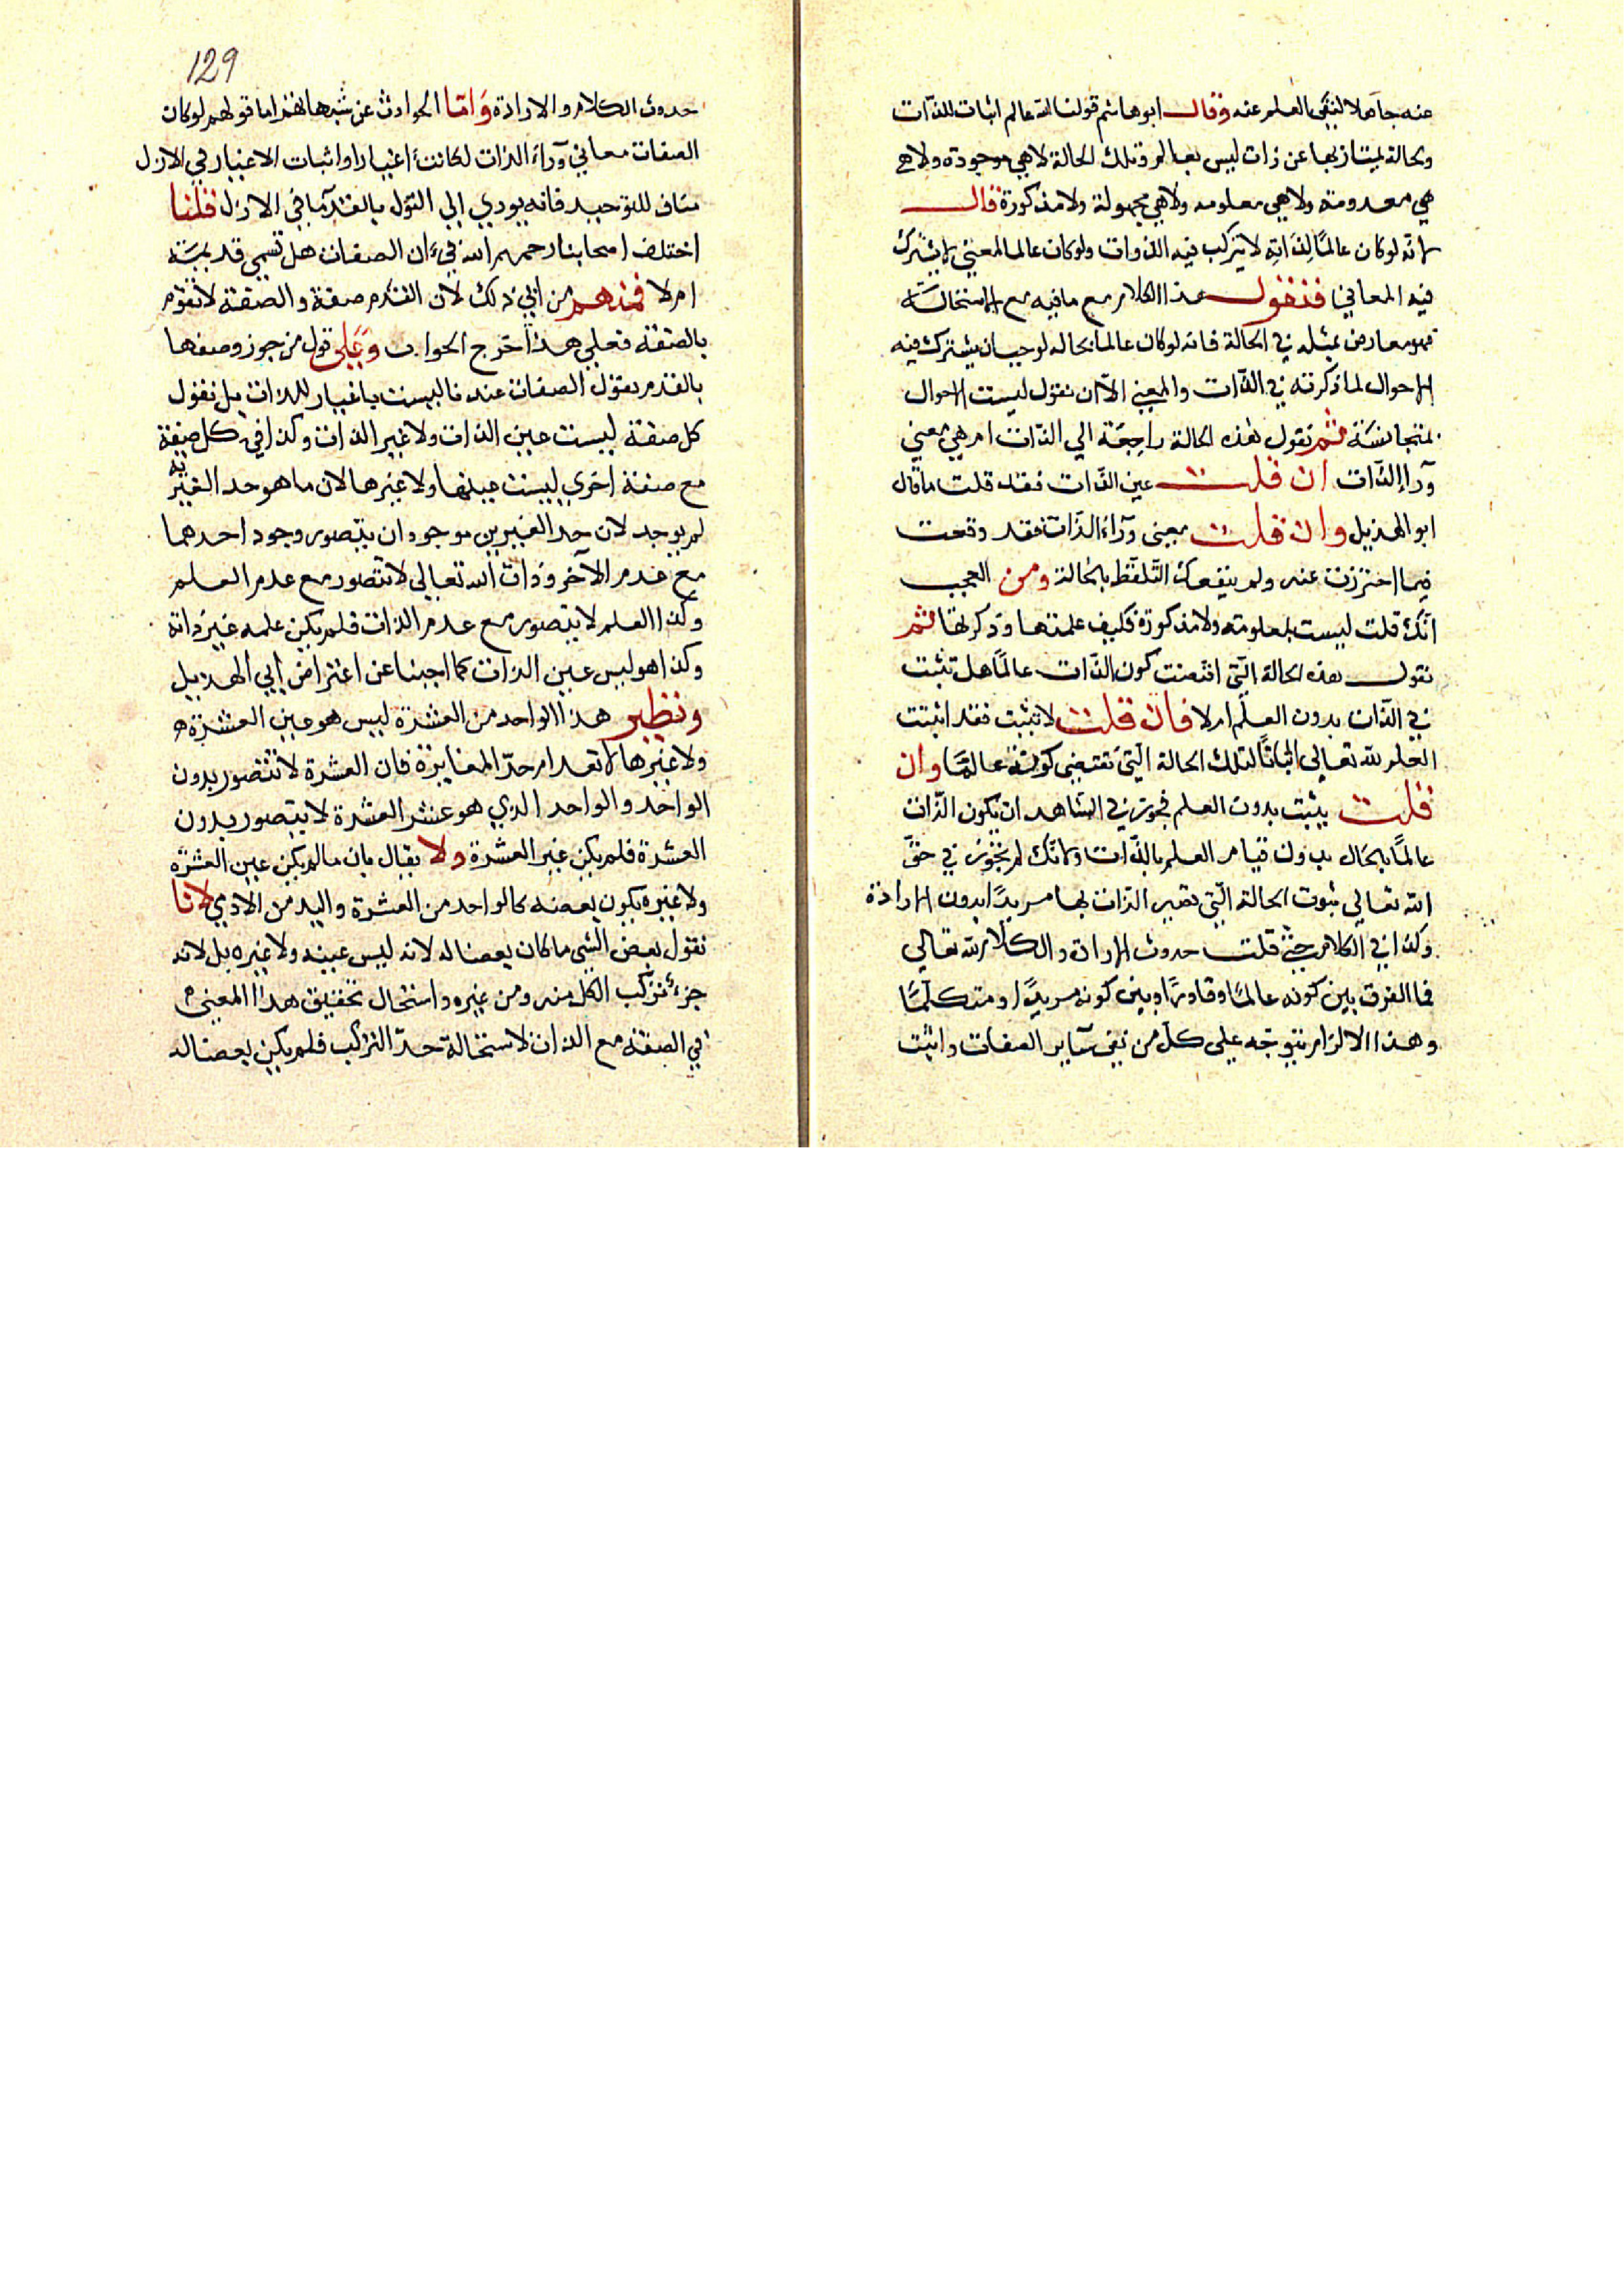 عنه جاهلا لنفى العلم عنه وقال ابو هاشم قولنا الله عالم اثبات للذات
وبحالة يمتاز بها عن ذات ليس بعالم وتلك الحالة لا هي موجودة ولا هي
هي معدومة ولا هي معلومه ولا هي مجهولة ولا مذكورة قال
لانه لو كان عالمًا لذاته لا يتركب فيه الذوات ولو كان عالما لمعنى لا يشترك
فيه المعاني فنقول هذا الكلام مع ما فيه مع الاستحالة
فهو معارض بمثله في الحالة فانه لو كان عالما بحاله لوجب ان يشترك فيه
الاحوال لما ذكرته في الذات والمعنى الا ان نقول ليست الاحوال
بمتجانسة ثم نقول هذه الحالة راجعة الي الذات ام هي معني
ورآ الذات ان قلت عين الذات فقد قلت ما قال
ابو الهذيل وان قلت معنى ورآء الذات فقد وقعت
فيما احترزت عنه ولم ينفعك التلفظ بالحالة ومن العجب
انك قلت ليست بمعلومة ولا مذكورة فكيف علمتها وذكرتها ثم
نقول هذه الحالة التي اقتضت كون الذات عالمًا هل تثبت
في الذات بدون العلم ام لا فان قلت لا تثبت فقد اثبتت
العلم لله تعالى اثباتًا لتلك الحالة التي تقتضى كونه عالمًا وان
قلت يثبت بدون العلم فجوز في الشاهد ان يكون الذات
عالمًا بالحال بدون قيام العلم بالذات ولانك لم تجوز في حق
الله تعالي ثبوت الحالة التي تصير الذات بها مريدًا بدون الارادة
وكذا في الكلام حتى قلت حدوث الارادة والكلام لله تعالي
فما الفرق بين كونه عالمًا وقادرًا وبين كونه مريدًا ومتكلمًا
وهذا الالزام نتوجه على كل من نفى سآير الصفات واثبت
129
حدوث الكلام والارادة وَامّا الجوادث عن شبهاتهم اما قولهم لو كان
الصفات معاني ورآء الذات لكانت اغيارا واثبات الاغيار في الازل
مناف للتوحيد فانه يودي الي القول بالقدمآ في الازل قلنا
اختلف اصحابنا رحمهم الله في ان الصفات هل تسمي قديمة
ام لا فمنهم من ابي ذلك لان القدم صفة والصفة لا تقوم
بالصفة فعلي هذا خرج الجواب وعَلي قول من جوز وصفها
بالقدم يقول الصفات عندنا ليست باغيار للذات بل نقول
كل صفة ليست عين الذات ولا غير الذات وكذا في كل صفة
مع صفة اخري ليست عينها ولا غيرها لان ما هو حد الغيرية
لم يوجد لان حد الغيرين موجودان يتصور وجود احدهما
مع عدم الآخر وذات الله تعالي لا تتصور مع عدم العلم
وكذا العلم لا يتصور مع عدم الذات فلم يكن علمه غير ذاته
وكذا هو ليس عين الذات كما اجبنا عن اعتراض ابي الهذيل
ونظير هذا الواحد من العشرة ليس هو عين العشرة
ولا غيرها لانعدام حدّ المغايرة فان العشرة لا تتصور بدون
الواحد والواحد الذي هو عشر العشرة لا يتصور بدون
العشرة فلم يكن غير العشرة ولا يقال بان ما لم يكن عين العشرة
ولا غيره يكون بعضه كالواحد من العشرة واليد من الادمي لانا
نقول بعض الشي ما كان بعضا له لانه ليس عينه ولا غيره بل لانه
جزء تركب الكل منه ومن غيره واستحال تحقيق هذا المعنى
في الصفة مع الذات لاستحالة حدّ التركب فلم يكن بعضا له